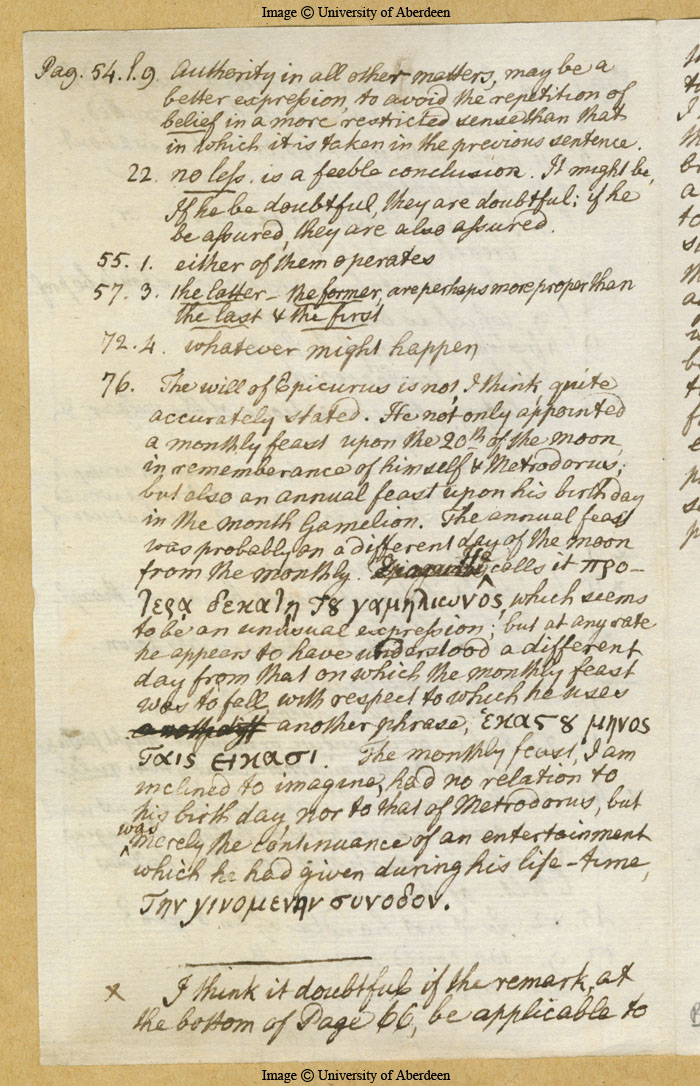 Image © University of Aberdeen
Pag. 54. l. 9. Authority in all other matters, may be a
better expreſsion, to avoid the repetition of
belief in a more restricted sense than that
in which it is taken in the previous sentence.
22. no leſs. is a feeble conclusion. It might be,
If he be doubtful, they are doubtful; if he
be aſsured, they are also aſsured.
55. 1. either of them operates
57. 3. the latter – the former, are perhaps more proper than
the last & the first
72. 4. whatever might happen
76. The will of Epicurus is not, I think, quite
accurately stated. He not only appointed
a monthly feast upon the 20th of the moon,
in rememberance of himself & Metrodorus;
but also an annual feast upon his birth day
in the month Gamelion. The annual feast
was probably on a different day of the moon
from the monthly. He calls it προ-
τερᾳ δεκατῃ τȣ γαμηλιωνος, which seems
to be an unusual expreſsion; but at any rate
he appears to have understood a different
day from that on which the monthly feast
was to fall, with respect to which he uses
another phrase, ἑκαςȣ μηνος
ταις εικασι. The monthly feast, I am
inclined to imagine, had no relation to
his birth day, nor to that of Metrodorus, but
was merely the continuance of an entertainment
which he had given during his life-time,
την γινομενην συνοδον.
x I think it doubtful if the remark, at
the bottom of Page 66, be applicable to
Image © University of Aberdeen